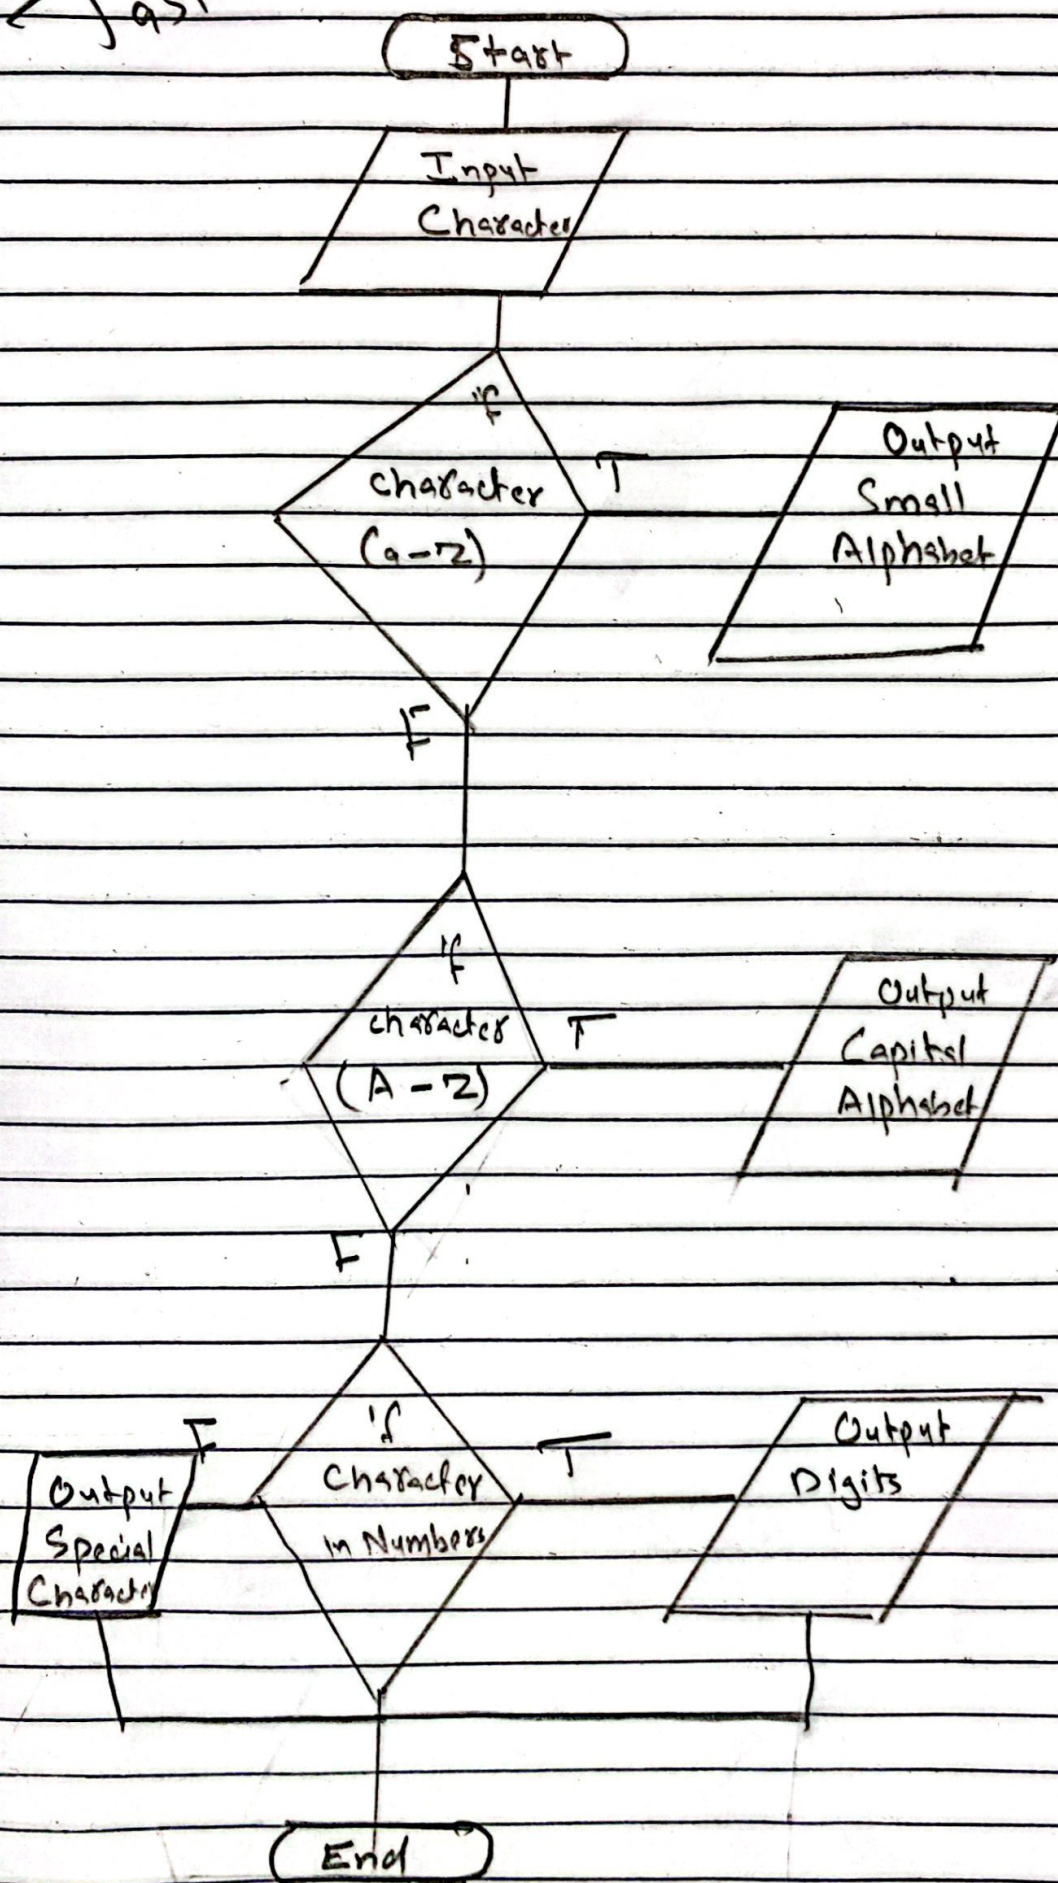 Start
Input
Character
if
character
(a-z)
T
Output
Small
Alphabet
F
if
character
(A-Z)
T
Output
Capital
Alphabet
F
if
Character
in Numbers
T
Output
Digits
F
Output
Special
Character
End